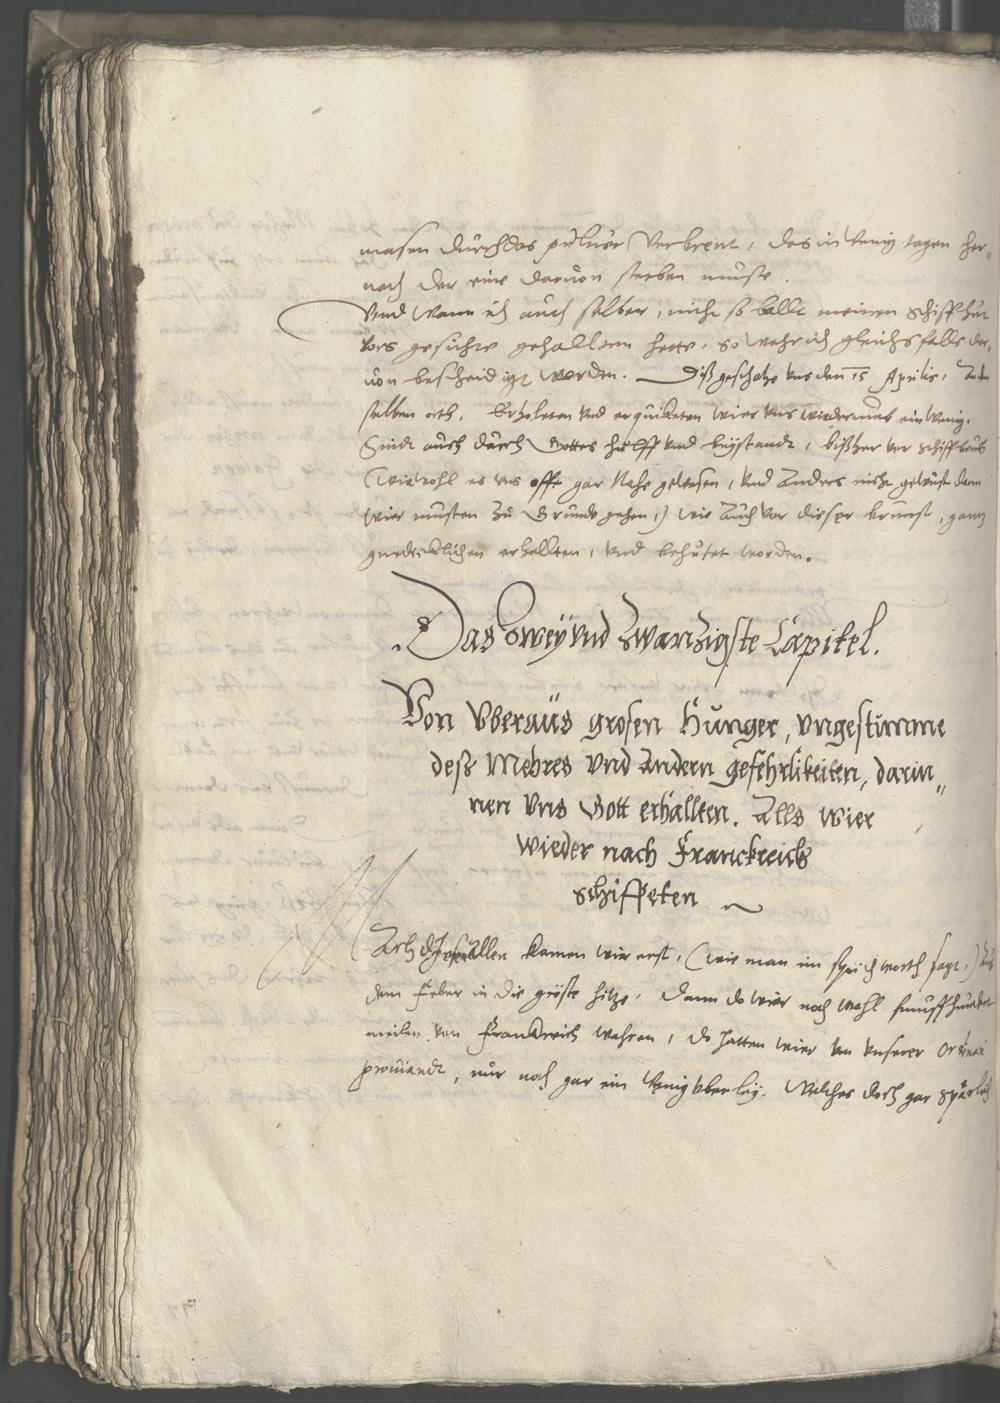 masen durch das puluer Verbrent, das in wenig tagen her„
nach der eine daruon sterben muste.
Vnd Wann ich auch selber, nicht so balldt meinen schiffhut
vors gesichte gehallten hette, so wehr ich gleichsfalls dar„
uon bescheidiget worden. Diß geschahe vns den 15 Aprilis, An dem
selben orth. Erholeten vnd erquicketen wier vns wiederumb ein wenig.
Sindt auch durch Gottes hulff vnd beystandt, bißher vor schiffbruch
(wiewohl es vns offt gar Nahe gewesen, vnd Anders nicht gewust dann
wier musten zu Grunde gehen,) wie Auch vor dieser brunst, gantz
gnediclichen erhallten, vnd behütet worden.
Das Zwey vnd Zwanzigste Capitel.
Von Vberaus grosen Hunger, vngestimme
deß Mehres vnd Andern gefehrlikeiten, darin„
nen vns Gott erhallten. Alls wier
wieder nach Franckreich
schiffeten
Nach diesen Allen kamen wir erst, (wie man im sprichworth sagt,) Aus
dem Fieber in die gröste hitze. Dann do wier noch wohl funffhundert
meilen von Franckreich wahren, do hatten wier von vnserer Ordinari
prouiandt, nur noch gar ein wenig vberley. Welches doch gar spärlich